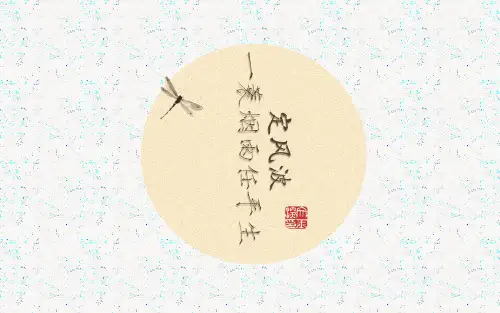 定风波
一蓑烟雨任平生